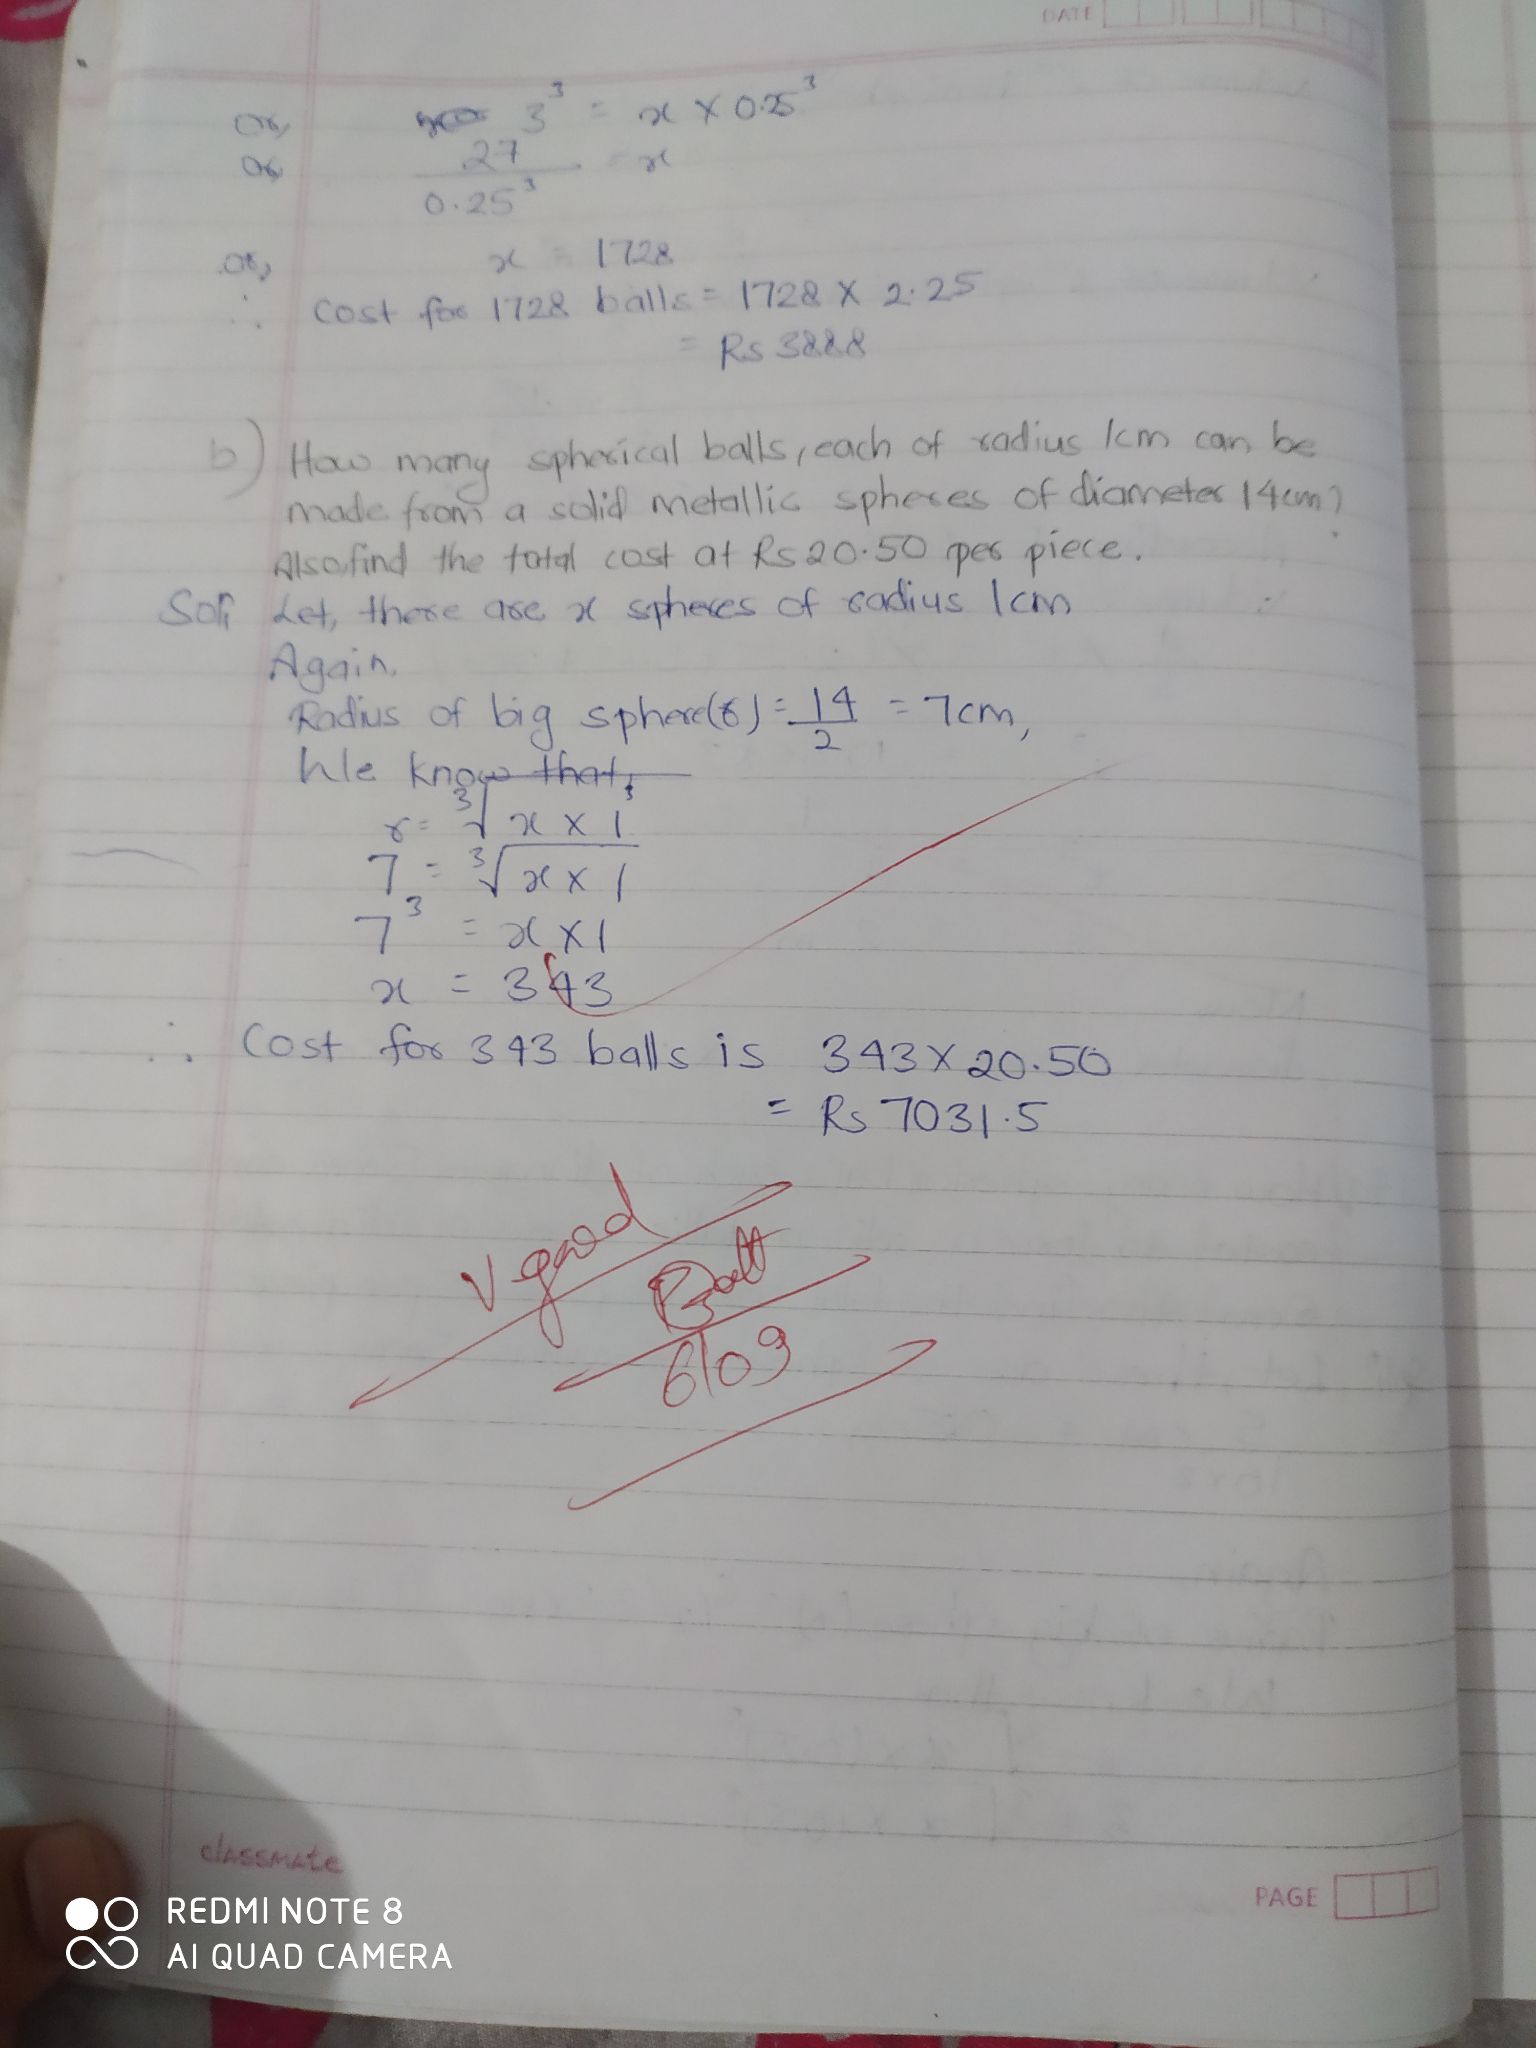 DATE
or, 3³ = x × 0.25³
or, 27 / 0.25³ = x
or, x = 1728
∴ Cost for 1728 balls = 1728 × 2.25
= Rs 3888
b) How many spherical balls, each of radius 1cm can be
made from a solid metallic spheres of diameter 14cm?
Also, find the total cost at Rs 20.50 per piece.
Soln Let, there are x spheres of radius 1cm
Again,
Radius of big sphere(r) = 14/2 = 7cm,
We know that,
r = ³√x × 1³
7 = ³√x × 1
7³ = x × 1
x = 343
∴ Cost for 343 balls is 343 × 20.50
= Rs 7031.5
V good
6/09
classmate
PAGE
REDMI NOTE 8
AI QUAD CAMERA